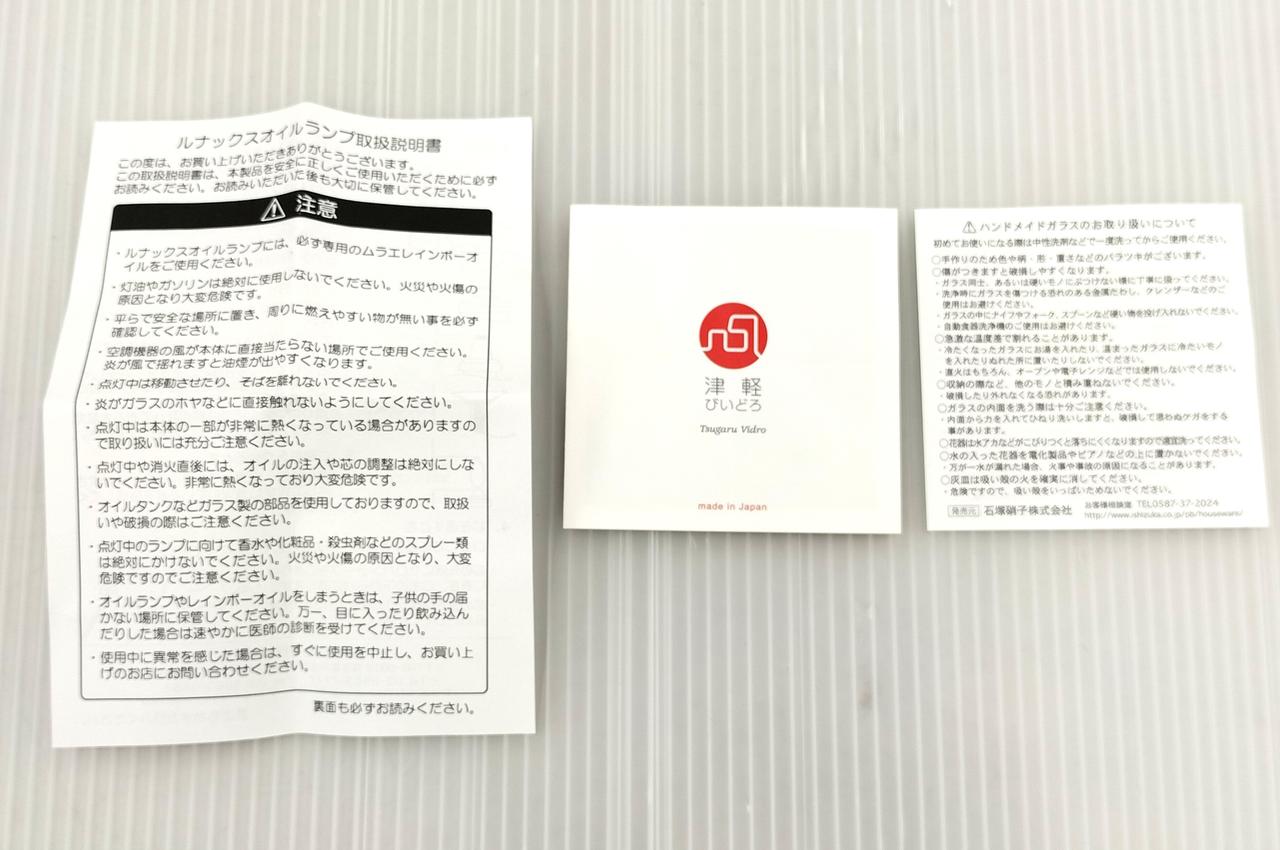 ルナックスオイルランプ取扱説明書
この度は、お買い上げいただきありがとうございます。
この取扱説明書は、本製品を安全に正しくご使用いただくために必ず
お読みください。お読みいただいた後も大切に保管してください。
注意
・ルナックスオイルランプには、必ず専用のムラエレインボーオ
イルをご使用ください。
・灯油やガソリンは絶対に使用しないでください。火災や火傷の
原因となり大変危険です。
・平らで安全な場所に置き、周りに燃えやすい物が無い事を必ず
確認してください。
・空調機器の風が本体に直接当たらない場所でご使用ください。
炎が風で揺れますと油煙が出やすくなります。
・点灯中は移動させたり、そばを離れないでください。
・炎がガラスのホヤなどに直接触れないようにしてください。
・点灯中は本体の一部が非常に熱くなっている場合がありますの
で取り扱いには充分ご注意ください。
・点灯中や消火直後には、オイルの注入や芯の調整は絶対にしな
いでください。非常に熱くなっており大変危険です。
・オイルタンクなどガラス製の部品を使用しておりますので、取扱
いや破損の際はご注意ください。
・点灯中のランプに向けて香水や化粧品・殺虫剤などのスプレー類
は絶対にかけないでください。火災や火傷の原因となり、大変
危険ですのでご注意ください。
・オイルランプやレインボーオイルをしまうときは、子供の手の届
かない場所に保管してください。万一、目に入ったり飲み込ん
だりした場合は速やかに医師の診断を受けてください。
・使用中に異常を感じた場合は、すぐに使用を中止し、お買い上
げのお店にお問い合わせください。
裏面も必ずお読みください。
津軽
びいどろ
Tsugaru Vidro
made in Japan
ハンドメイドガラスのお取り扱いについて
初めてお使いになる際は中性洗剤などで一度洗ってからご使用ください。
○手作りのため色や柄・形・重さなどのバラツキがございます。
○傷がつきますと破損しやすくなります。
・ガラス同士、あるいは硬いモノにぶつけない様に丁寧に扱ってください。
・洗浄時にガラスを傷つける恐れのある金属たわし、クレンザーなどのご
使用はお避けください。
・ガラスの中にナイフやフォーク、スプーンなど硬い物を投げ入れないでください。
・自動食器洗浄機のご使用はお避けください。
○急激な温度差で割れることがあります。
・冷たくなったガラスにお湯を入れたり、温まったガラスに冷たいモノ
を入れたりぬれた所に置いたりしないでください。
・直火はもちろん、オーブンや電子レンジなどでは使用しないでください。
○収納の際など、他のモノと積み重ねないでください。
・破損したり外れなくなる恐れがあります。
○ガラスの内面を洗う際は十分ご注意ください。
・内面から力を入れてひねり洗いしますと、破損して思わぬケガをする
事があります。
○花器は水アカなどがこびりつくと落ちにくくなりますので適宜洗ってください。
○水の入った花器を電化製品やピアノなどの上に置かないでください。
・万が一水が漏れた場合、火事や事故の原因になることがあります。
○灰皿は吸い殻の火を確実に消してください。
・危険ですので、吸い殻をいっぱいためないでください。
発売元 石塚硝子株式会社 お客様相談室 TEL0587-37-2024
http://www.ishizuka.co.jp/pb/houseware/